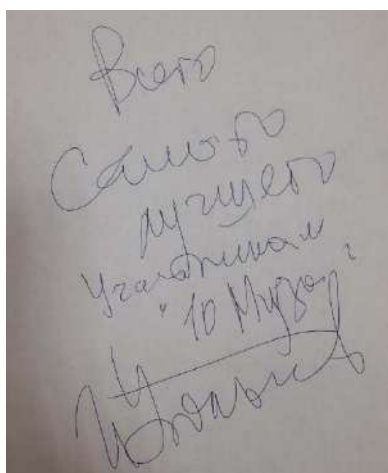 Всего
Самого
лучшего
участникам
"10 Муз"